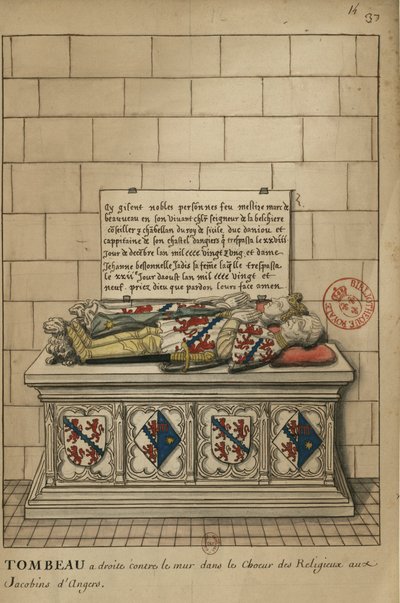 14 37
Cy gisent nobles personnes feu messire marc de
beauveau en son vivant chlr seigneur de la beschiere
coseiller y chabellan du roy de sicile duc daniou et
cappitaine de son chastel dangiers q trespassa le xxviii
Jour de decebre lan mil cccc vingt & ung et dame
Jehanne bessonnelle Jadis sa feme laqlle trespassa
le xxii.e Jour daoust lan mil cccc vingt et
neuf. priez dieu que pardon leurs face amen
BIBLIOTHEQUE ROYALE
TOMBEAU a droite contre le mur dans le Choeur des Religieux aux
Jacobins d'Angers.